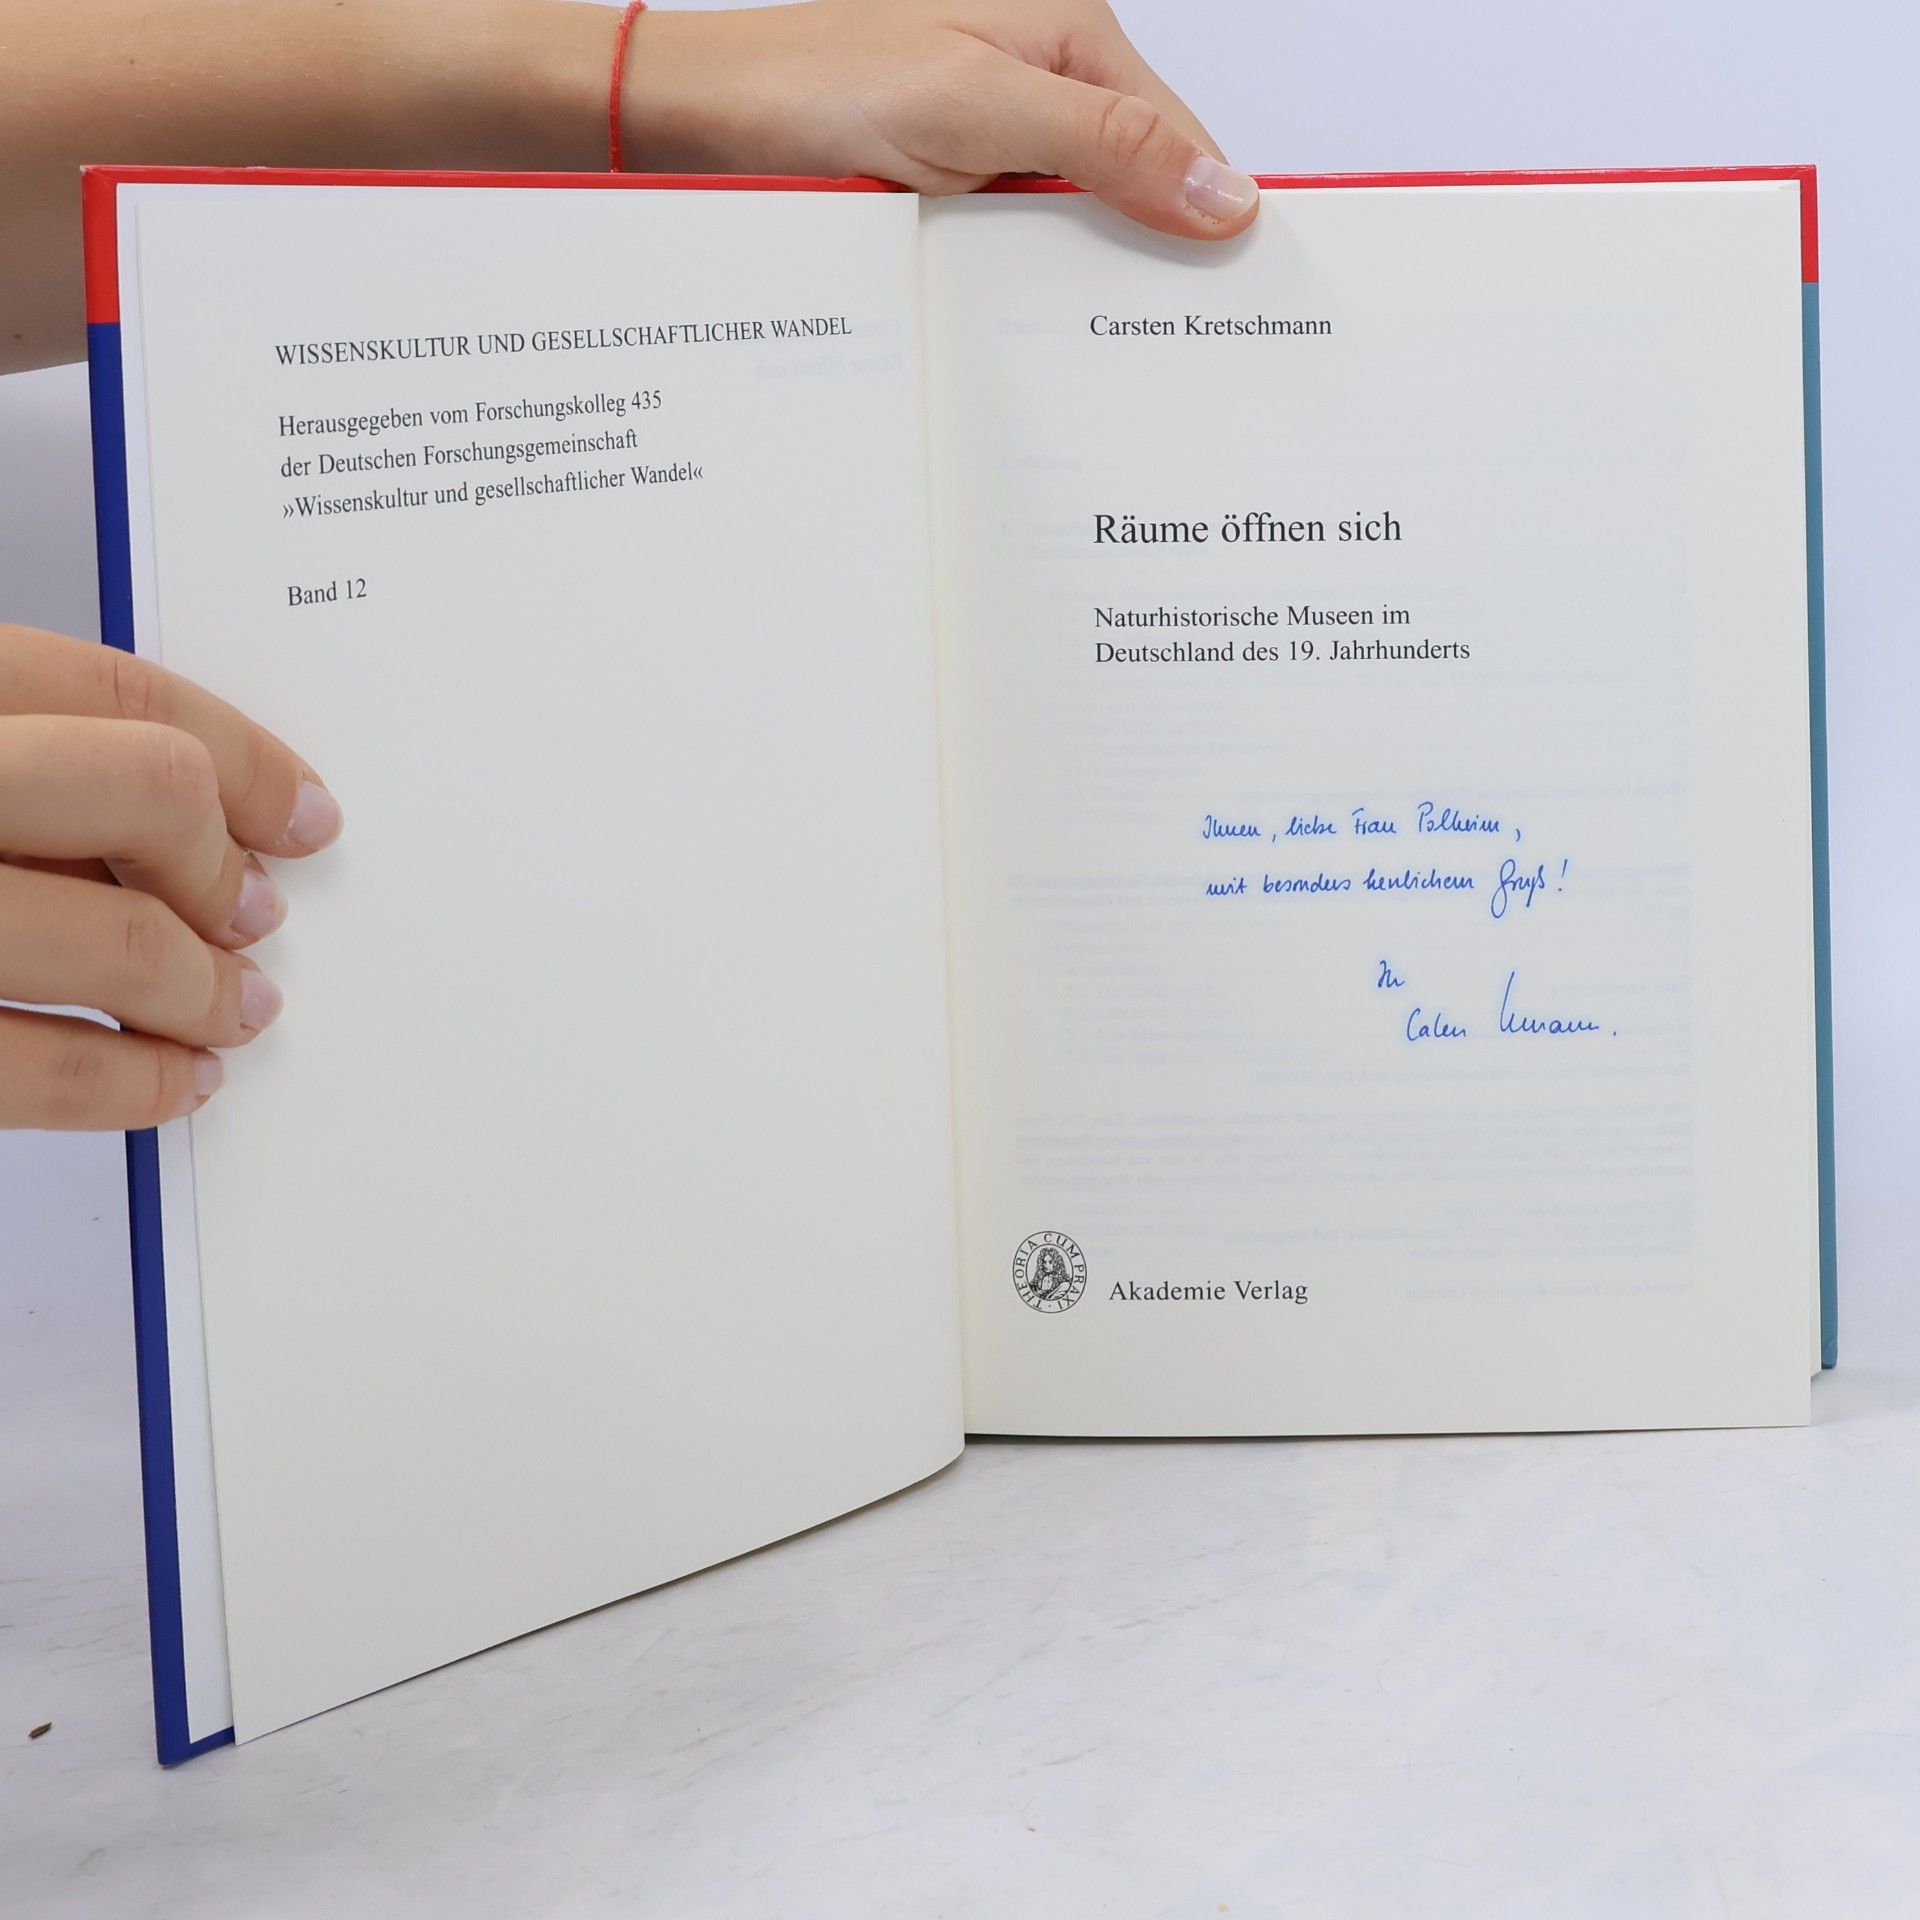 WISSENSKULTUR UND GESELLSCHAFTLICHER WANDEL
Herausgegeben vom Forschungskolleg 435
der Deutschen Forschungsgemeinschaft
»Wissenskultur und gesellschaftlicher Wandel«
Band 12
Carsten Kretschmann
Räume öffnen sich
Naturhistorische Museen im
Deutschland des 19. Jahrhunderts
Ihnen, liebe Frau Polheim,
mit besonders herzlichem Gruß!
Ihr
THEORIA CUM PRAXI
Akademie Verlag